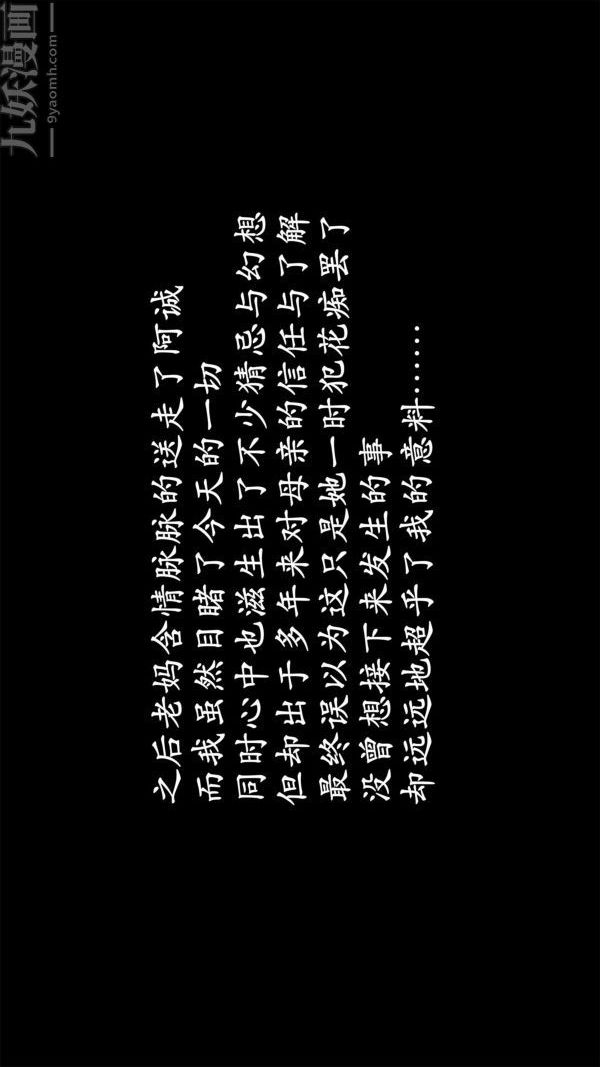 九妖漫画
9yaomh.com
之后老妈含情脉脉的送走了阿诚
而我虽然目睹了今天的一切
同时心中也滋生出了不少猜忌与幻想
但却出于多年来对母亲的信任与了解
最终误以为这只是她一时犯花痴罢了
没曾想接下来发生的事
却远远地超乎了我的意料……